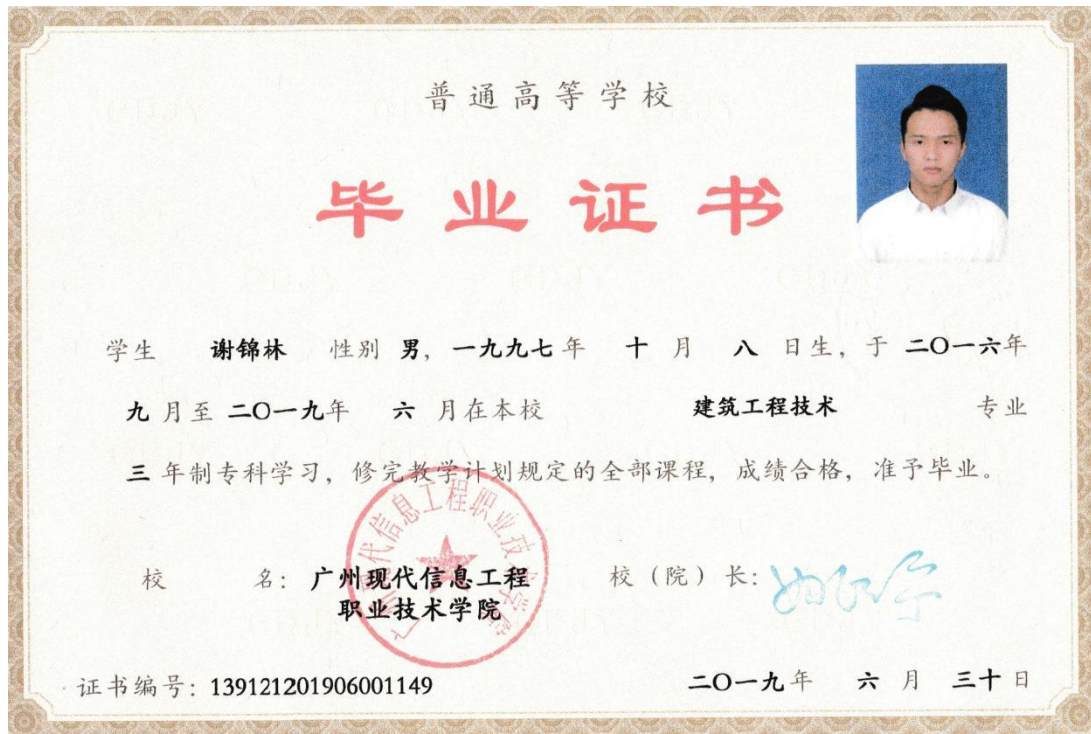 普通高等学校
毕业证书
学生 谢锦林 性别 男，一九九七年 十 月 八 日生，于 二〇一六年
九 月至 二〇一九年 六 月在本校 建筑工程技术 专业
三 年制专科学习，修完教学计划规定的全部课程，成绩合格，准予毕业。
广州现代信息工程职业技术学院
校 名：广州现代信息工程 校（院）长：
职业技术学院
证书编号：139121201906001149 二〇一九年 六 月 三十 日